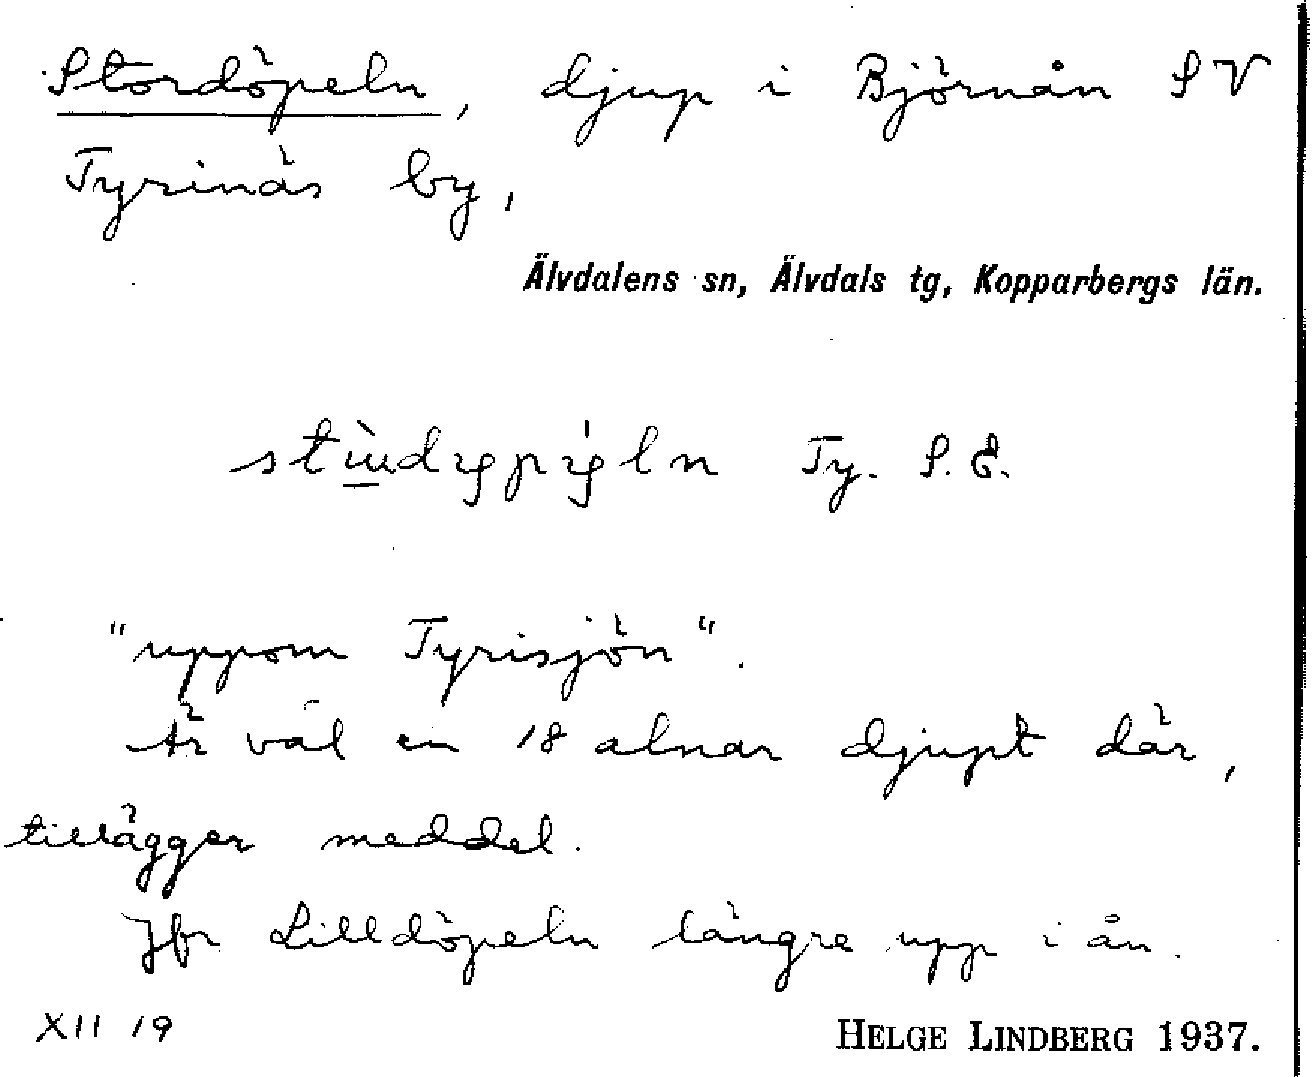 Stordöpeln, djup i Björnån SV
Tyrinäs by,
Älvdalens sn, Älvdals tg, Kopparbergs län.
Ty. S. E.
"uppom Tyrisjön".
Är väl en 18 alnar djupt där,
tillägger meddel.
Jfr Lilldöpeln längre upp i ån.
XII 19
HELGE LINDBERG 1937.